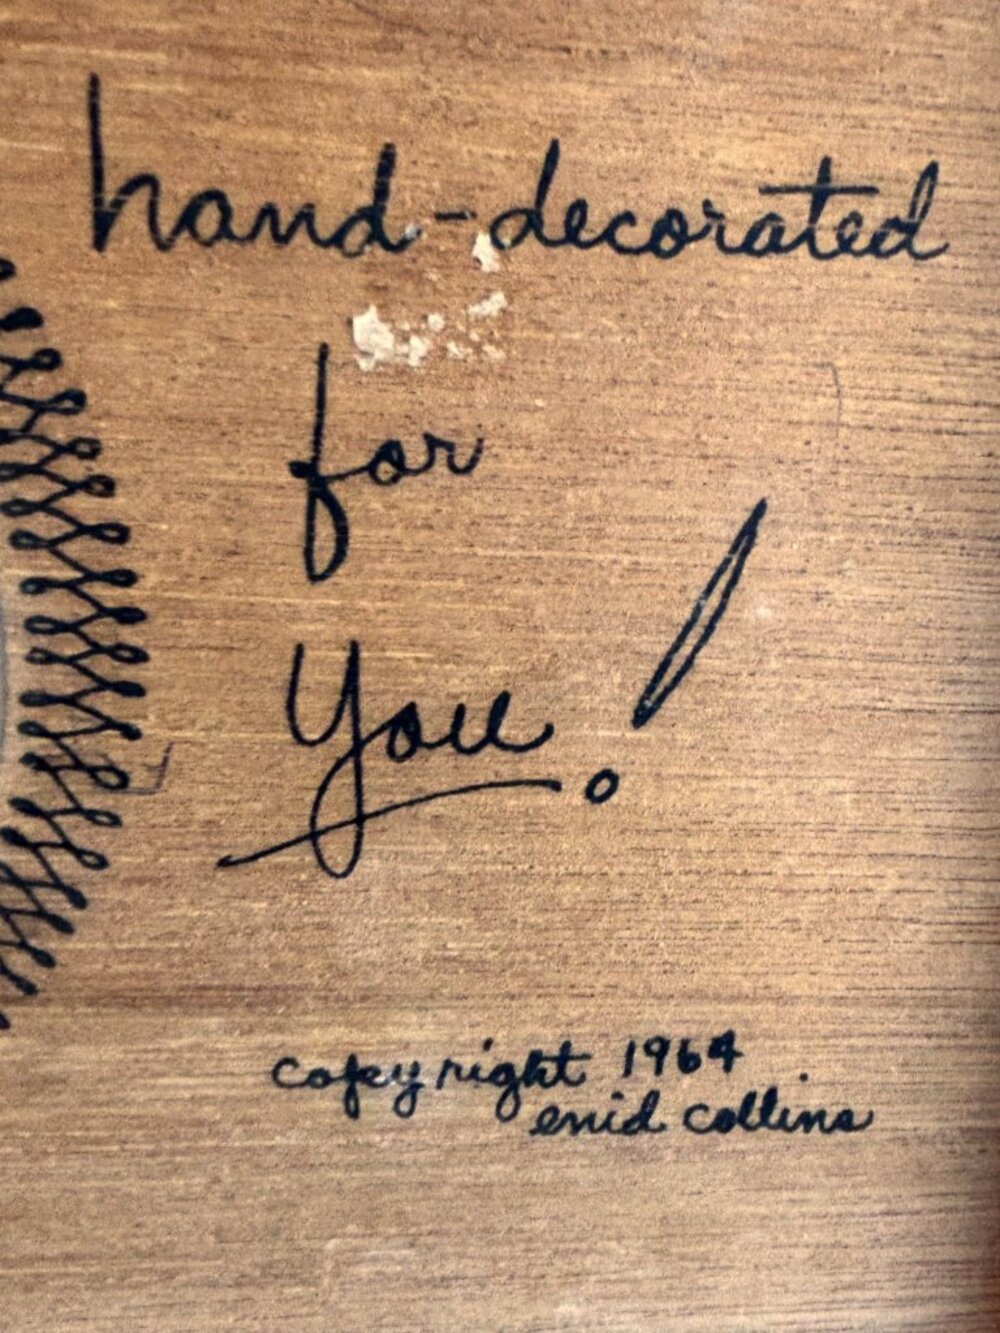 hand-decorated
for
you!
copyright 1964
enid collins